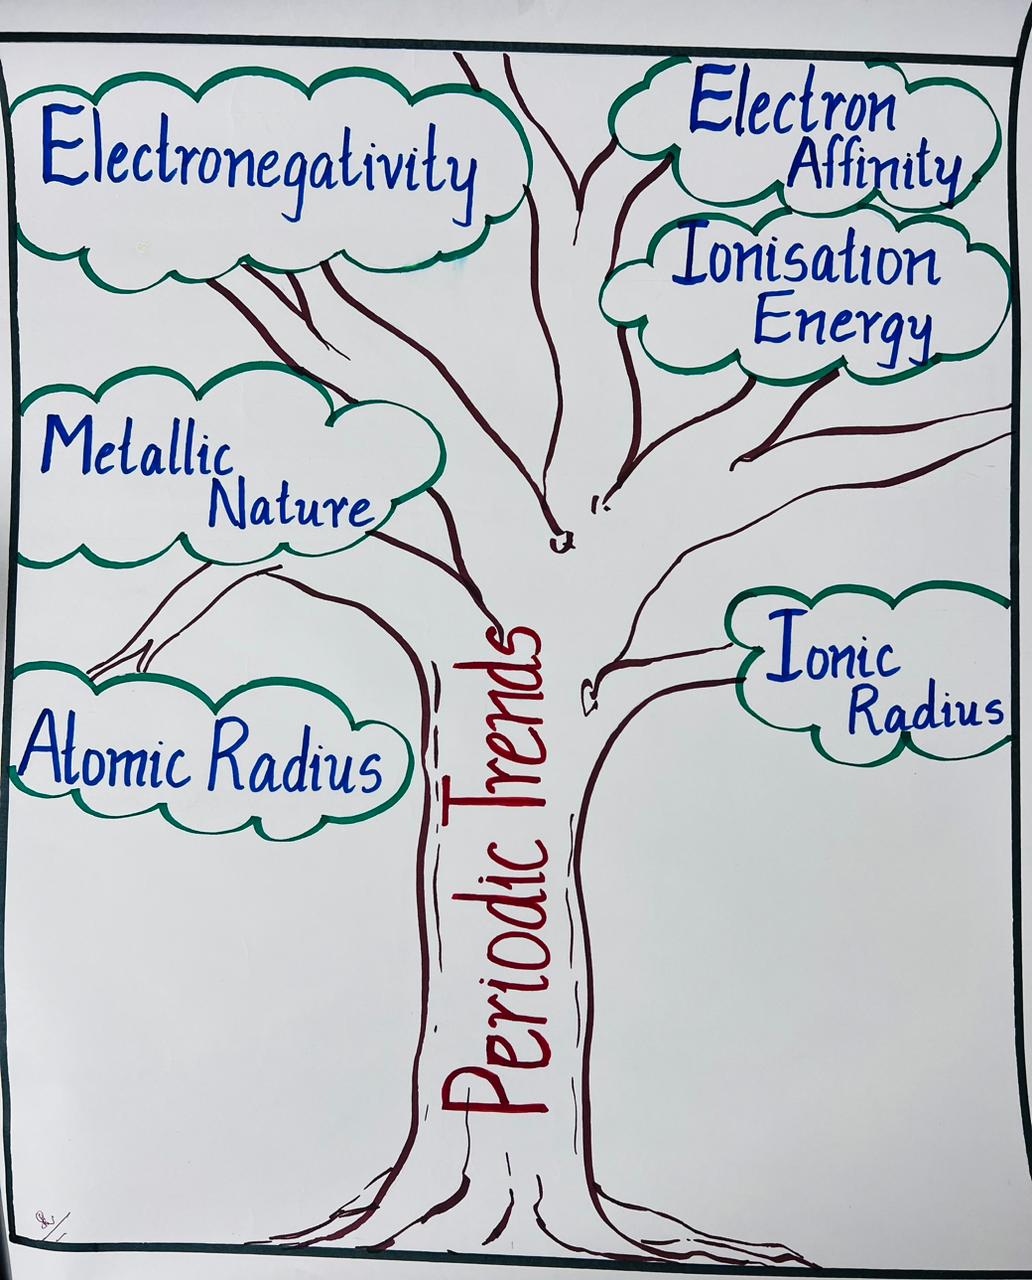 Electronegativity
Electron
Affinity
Ionisation
Energy
Metallic
Nature
Ionic
Radius
Atomic Radius
Periodic Trends